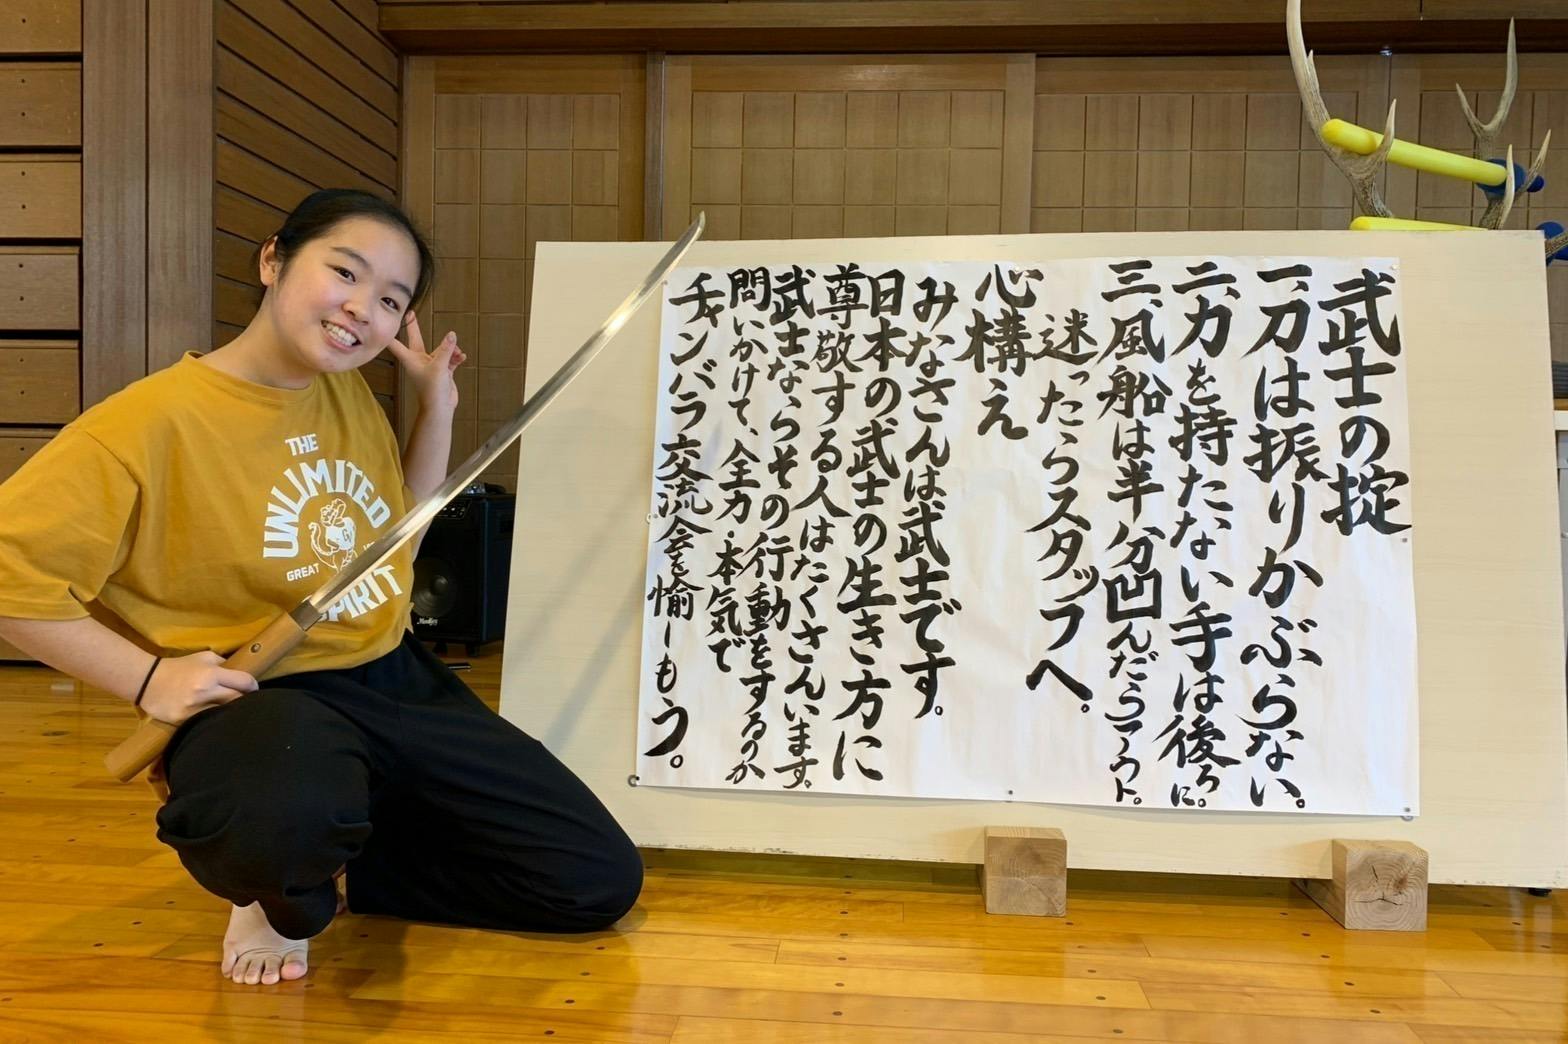 武士の掟
一、刀は振りかぶらない。
二、力を持たない手は後ろに。
三、風船は半分凹んだらアウト。
迷ったらスタッフへ。
心構え
みなさんは武士です。
日本の武士の生き方に
尊敬する人はたくさんいます。
武士ならその行動をするのか
問いかけて、全力・本気で
チャンバラ交流会を愉しもう。
THE
UNLIMITED
GREAT
SPIRIT